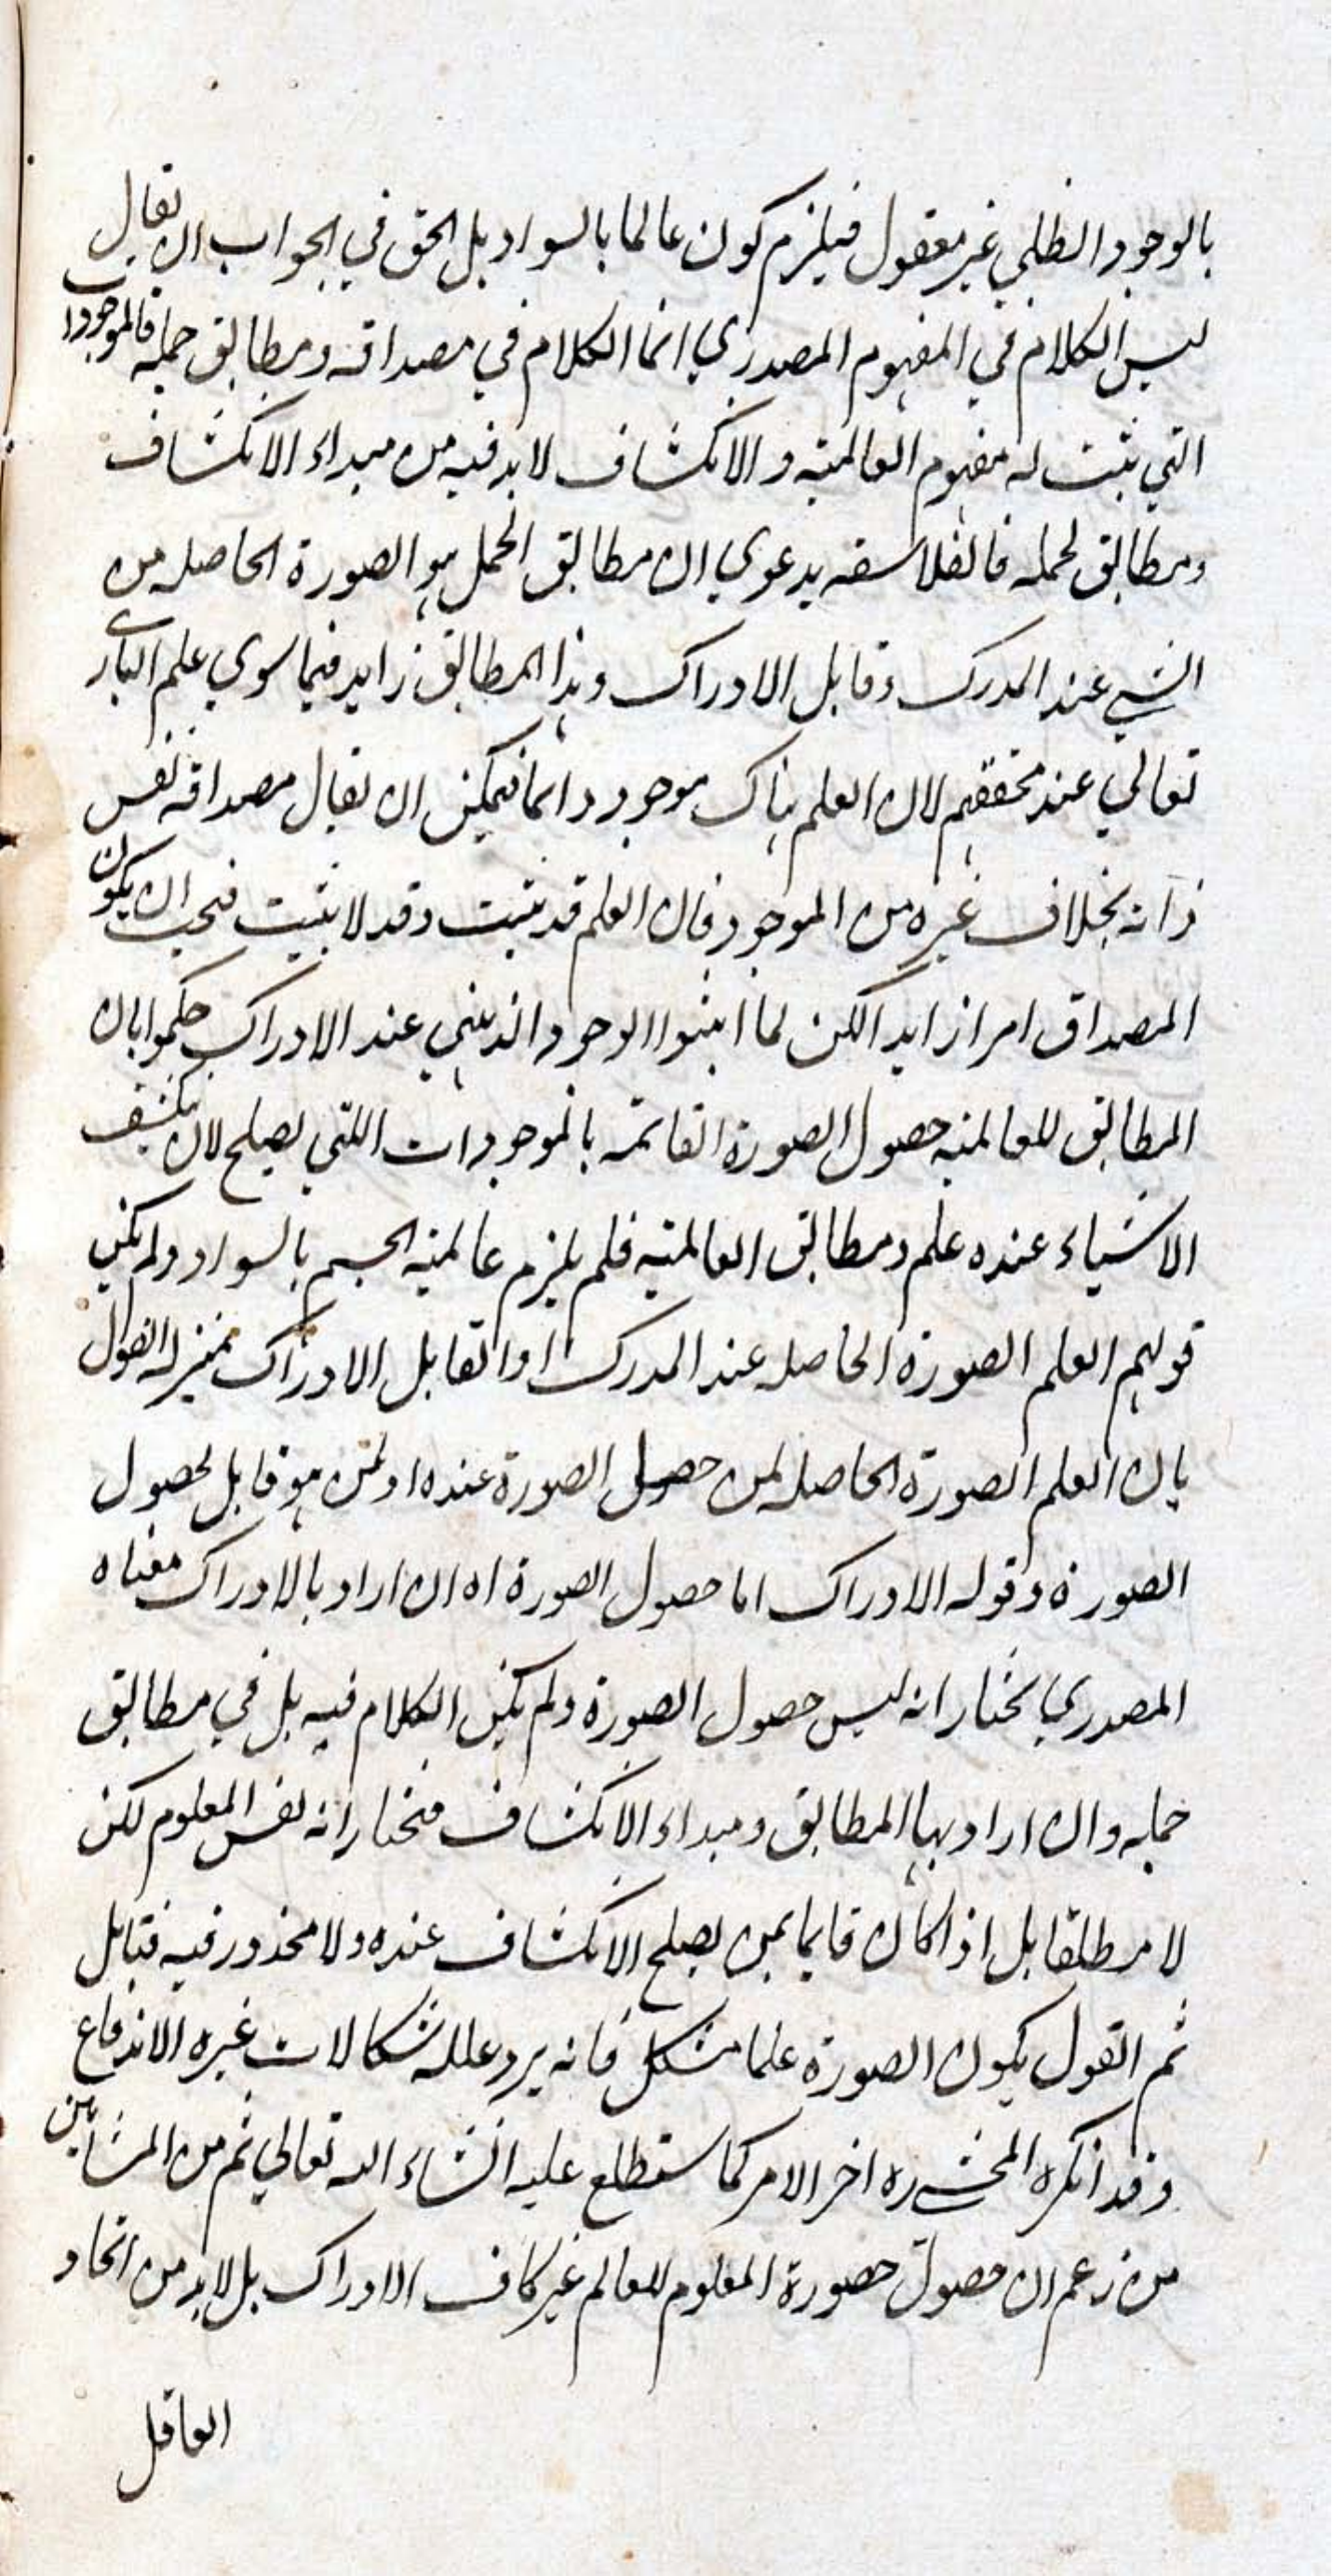 بالوجود الظلي غير معقول فيلزم كون عالما بالسواد بل الحق في الجواب ان يقال
ليس الكلام في المفهوم المصدري انما الكلام في مصداقه ومطابق حمله فالموجودات
التي يثبت له مفهوم العالمية والانكشاف لا بد فيه من مبداء الانكشاف
ومطابق لحمله فالفلاسفه يدعوي ان مطابق الحمل هو الصورة الحاصله من
الشيء عند المدرك وقابل الادراك وهذا المطابق زايد فيما سوي علم الباري
تعالي عند محققهم لان العلم هناك موجود دائما فيمكن ان يقال مصداقه نفس
ذاته بخلاف غيره من الموجود فان العلم قد يثبت وقد لا يثبت فيجب ان يكون
المصداق امرا زايدا لكن لما اثبتوا الوجود الذهني عند الادراك حكموا بان
المطابق للعالميه حصول الصورة القائمه بالموجودات اللتي يصلح لان ينكشف
الاشياء عنده علم ومطابق العالميه فلم يلزم عالميه الجسم بالسواد ولم يكن
قولهم العلم الصورة الحاصله عند المدرك او القابل الادراك بمنزله القول
بان العلم الصورة الحاصله لمن حصل الصورة عنده او لمن هو قابل لحصول
الصورة وقوله الادراك اما حصول الصورة اه ان اراد بالادراك معناه
المصدري نختار انه ليس حصول الصورة ولم يكن الكلام فيه بل في مطابق
حمله وان اراد بها المطابق ومبداء الانكشاف فنختار انه نفس المعلوم لكن
لا مطلقا بل اذا كان قايما بمن يصلح الانكشاف عنده ولا محذور فيه فتامل
ثم القول بكون الصورة علما مشكل فانه يرد عليه شكالات غيره الاندفاع
وقد انكره المحشي ره اخر الامر كما ستطلع عليه انشاء الله تعالي ثم من المشايين
من زعم ان حصول حصورة المعلوم للعالم غير كاف الادراك بل لا بد من اتحاد
العاقل